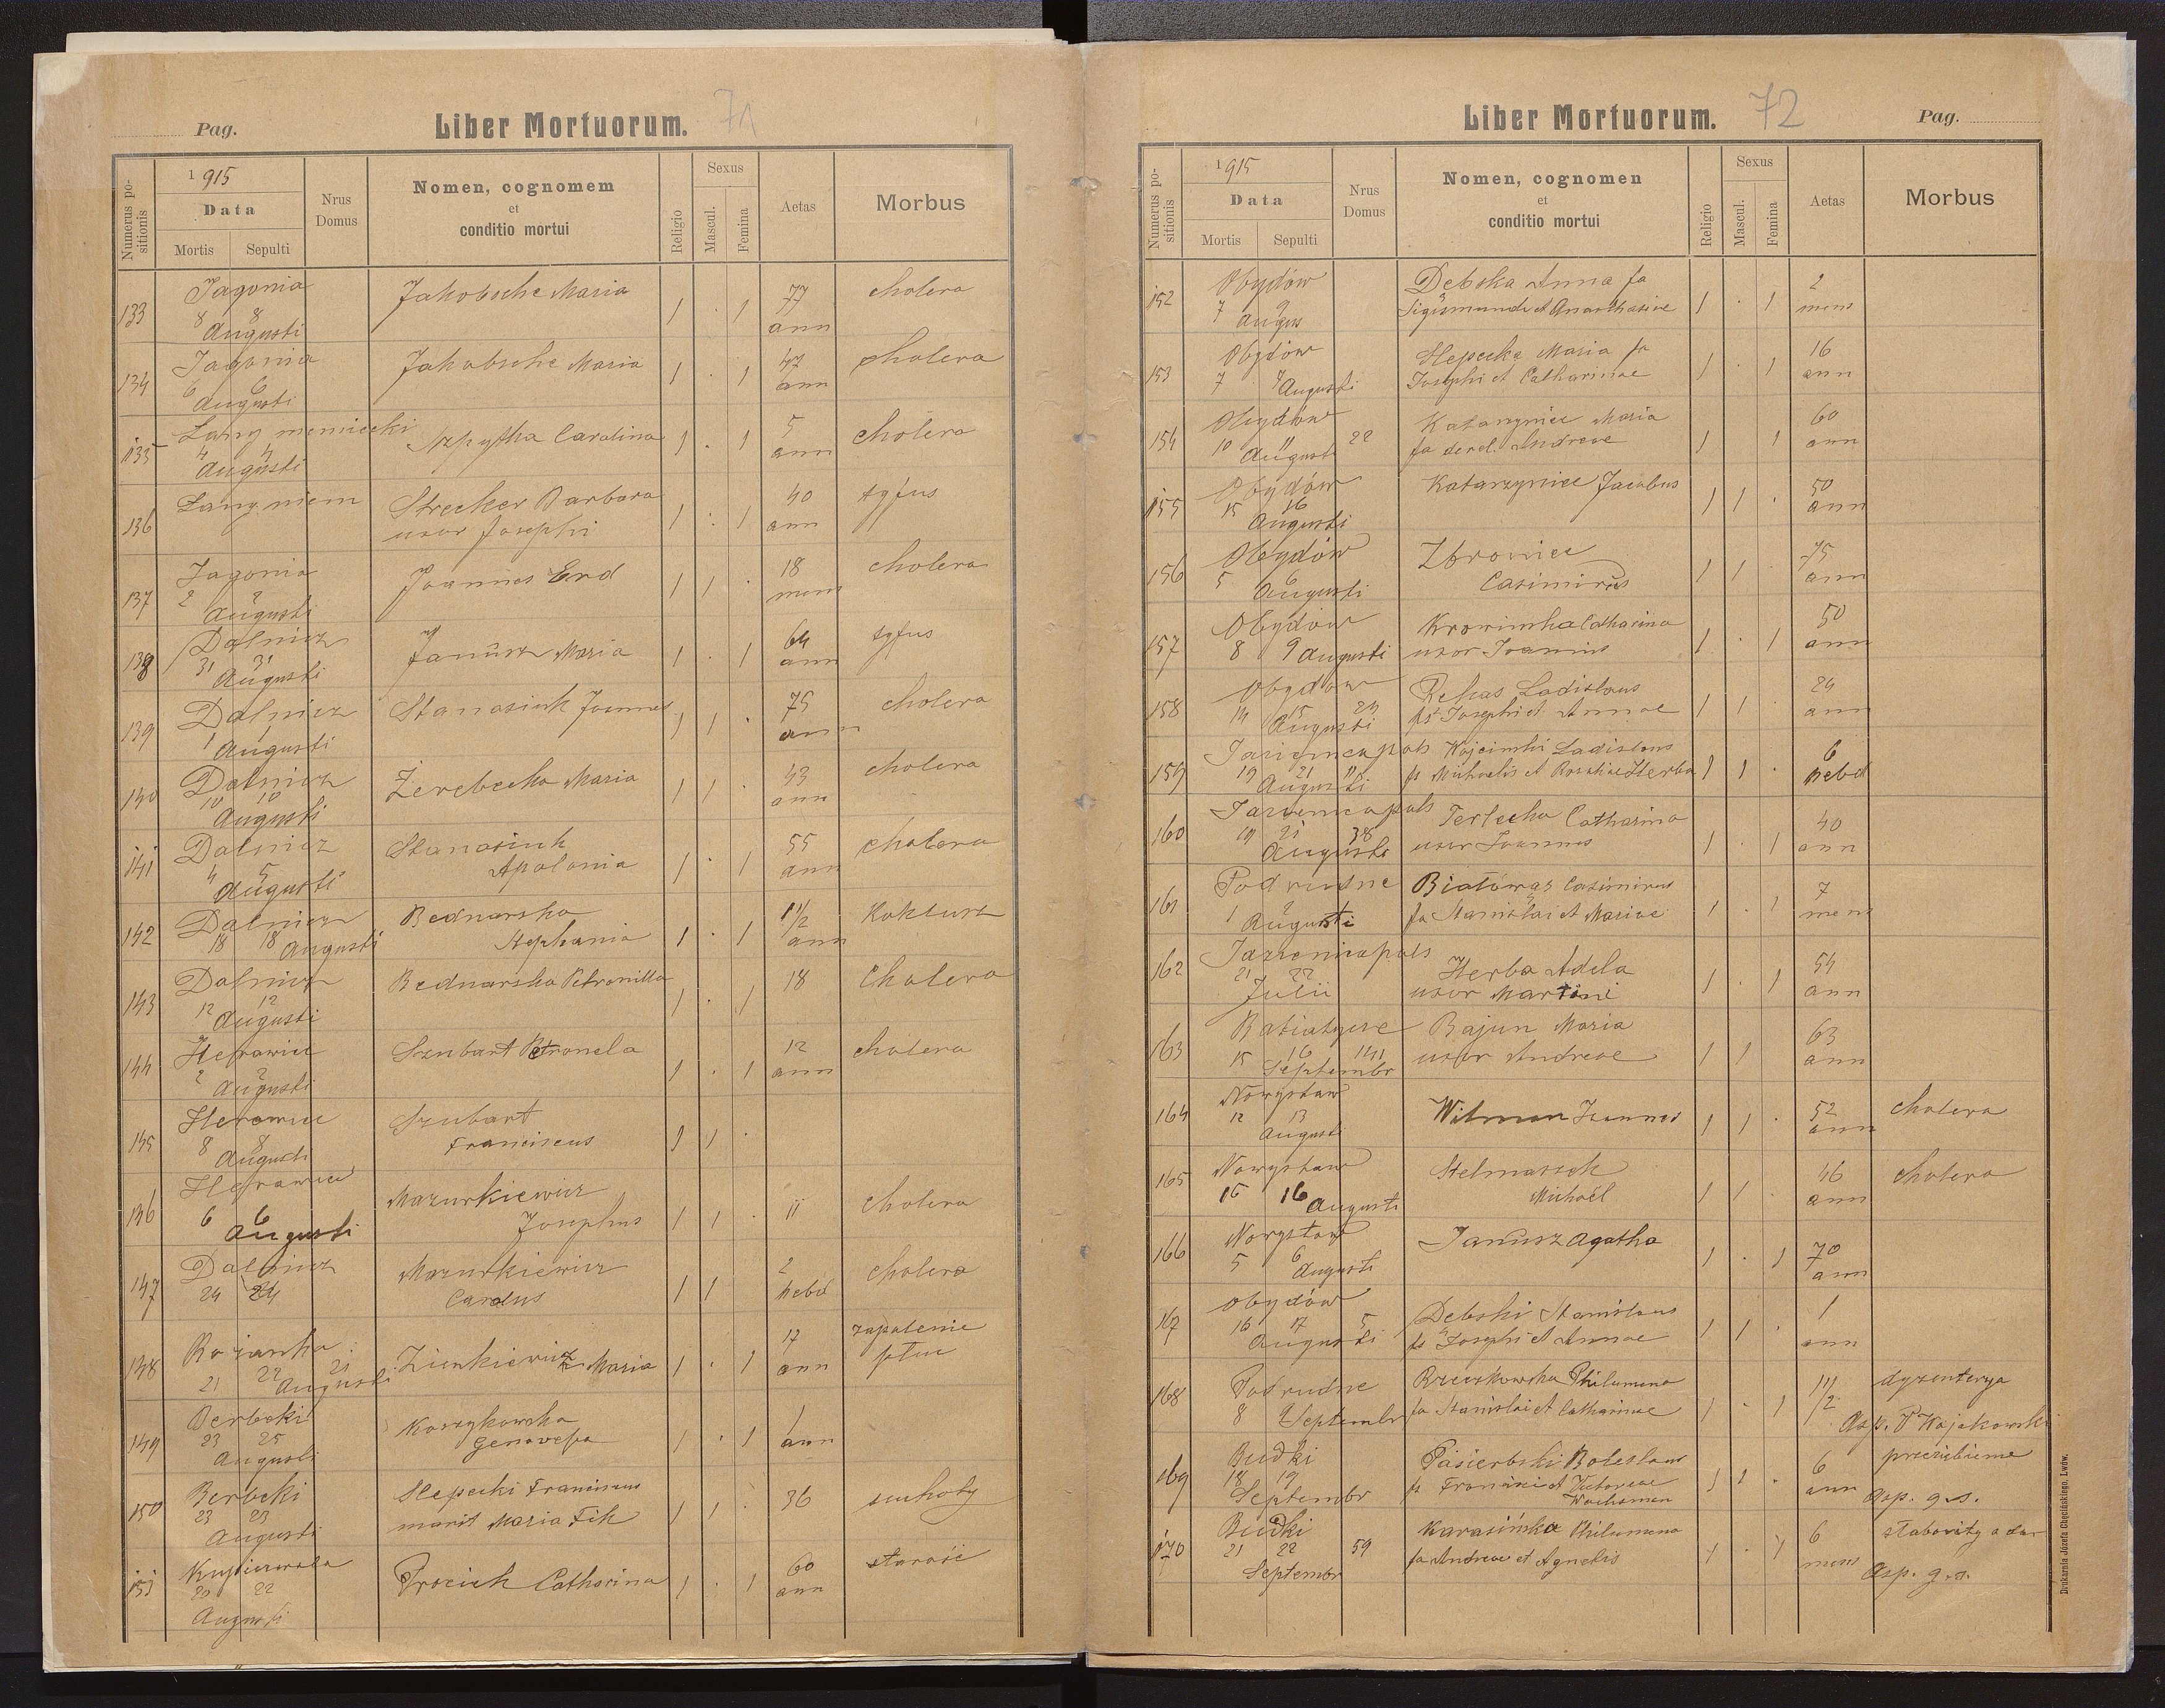 Pag.
Liber Mortuorum. 71
Numerus positionis
1915
Data
Mortis Sepulti
Nrus Domus
Nomen, cognomem
et
conditio mortui
Religio
Sexus
Mascul. Femina
Aetas
Morbus
133 Jagonia 8 8 Augusti Jakobsche Maria 1 . 1 77 ann cholera
134 Jagonia 6 6 Augusti Jakobsche Maria 1 . 1 47 ann cholera
135 4 4 Augusti Carolina 1 . 1 5 ann cholera
136 Łany niem Strecker Barbara 1 . 1 40 ann tyfus
uxor Josephi
137 Jagonia 2 2 Augusti Joannes Erd 1 1 . 18 mens cholera
138 Dalnicz 31 31 Augusti Janusz Maria 1 . 1 64 ann tyfus
139 Dalnicz 1 1 Augusti Stanasiuk Joannes 1 1 . 75 ann cholera
140 Dalnicz 10 10 Augusti Żerebecka Maria 1 1 . 43 ann cholera
141 Dalnicz 4 5 Augusti Stanasiuk 1 . 1 55 ann cholera
Apolonia
142 Dalnicz 18 18 Augusti Bednarska 1 . 1 1 1/2 ann Koklusz
Stephania
143 Dalnicz 12 12 Augusti Bednarska Petronilla 1 . 1 18 Cholera
144 2 2 Augusti Szubart Petronela 1 . 1 12 ann cholera
145 8 8 Augusti Szubart 1 1 .
Franciscus
146 6 6 Augusti Mazurkiewicz 1 1 . 11 cholera
Josephus
147 Dalnicz 24 24 Mazurkiewicz 1 1 2 hebd cholera
Carolus
148 21 22 21 Augusti Zienkiewicz Maria 1 . 1 17 ann zapalenie
płuc
149 Berbeki 23 25 Augusti Koszykowska 1 . 1 1 ann
Genovefa
150 Berbeki 23 23 Augusti Slepecki Franciscus 1 1 . 36 suchoty
marit Maria Fik
151 20 22 Augusti Procick Catharina 1 . 1 60 ann starość
Liber Mortuorum. 72
Pag.
Numerus positionis
1915
Data
Mortis Sepulti
Nrus Domus
Nomen, cognomen
et
conditio mortui
Religio
Sexus
Mascul. Femina
Aetas
Morbus
152 Obydów 7 9 Augus Debska Anna fa 1 . 1 2 mens
Sigismundi et
153 Obydów 7 Augusti Slepecka Maria fa 1 . 1 16 ann
Josephi et Catharinae
154 Obydów 10 11 Augusti 22 Katarzyniec Maria 1 1 60 ann
fa Andreae
155 Obydów 15 16 Augusti Katarzyniec Jacobus 1 1 . 50 ann
156 Obydów 5 6 Augusti Zbroniec 1 1 75 ann
Casimirus
157 Obydów 8 9 Augusti Catharina 1 . 1 50 ann
uxor Joannis
158 Obydów 14 15 Augusti Rekas Ladislaus 1 1 . 24 ann
fs Josephi et Annae
159 19 21 Augusti 11 Ladislaus
fs Michaelis et Rosaliae Herba 1 1 . 6 hebd
160 19 21 Augusti 38 Terlecka Catharina 1 . 1 40 ann
uxor Joannes
161 Podrudne 1 2 Augusti Białowąs Casimirus 1 . 1 7 mens
fa Stanislai et Mariae
162 21 22 Julii Herba Adela 1 . 1 54 ann
uxor Martini
163 Batiatycze 15 16 Septembr 141 Bajun Maria 1 1 63 ann
uxor Andreae
164 Nowystaw 12 13 Augusti Wilman Joannes 1 1 . 52 ann cholera
165 Nowystaw 15 16 Augusti Stelmaszek 1 1 . 46 ann cholera
Michaël
166 Nowystaw 5 6 Augusti Janusz Agatha 1 . 1 70 ann
167 Obydów 16 17 Augusti 5 Debski Stanislaus 1 1 . 1 ann
fs Josephi et Annae
168 Podrudne 8 9 Septembr Philumena 1 . 1 1 1/2 dyzenterya
fa Stanislai et Catharinae Asp. P Wojakowski
169 Budki 18 19 Septembr Pasierbski Boleslaus 1 1 . 6 ann przeziębienie
fs Francisci et Victoriae
Wachsman Asp. g.s.
170 Budki 21 22 Septembr 59 Karasińska Philumena 1 . 1 6 mens
fa Andreae et Agnetis Asp. g.s.
Drukarnia Józefa Chęcińskiego, Lwów.